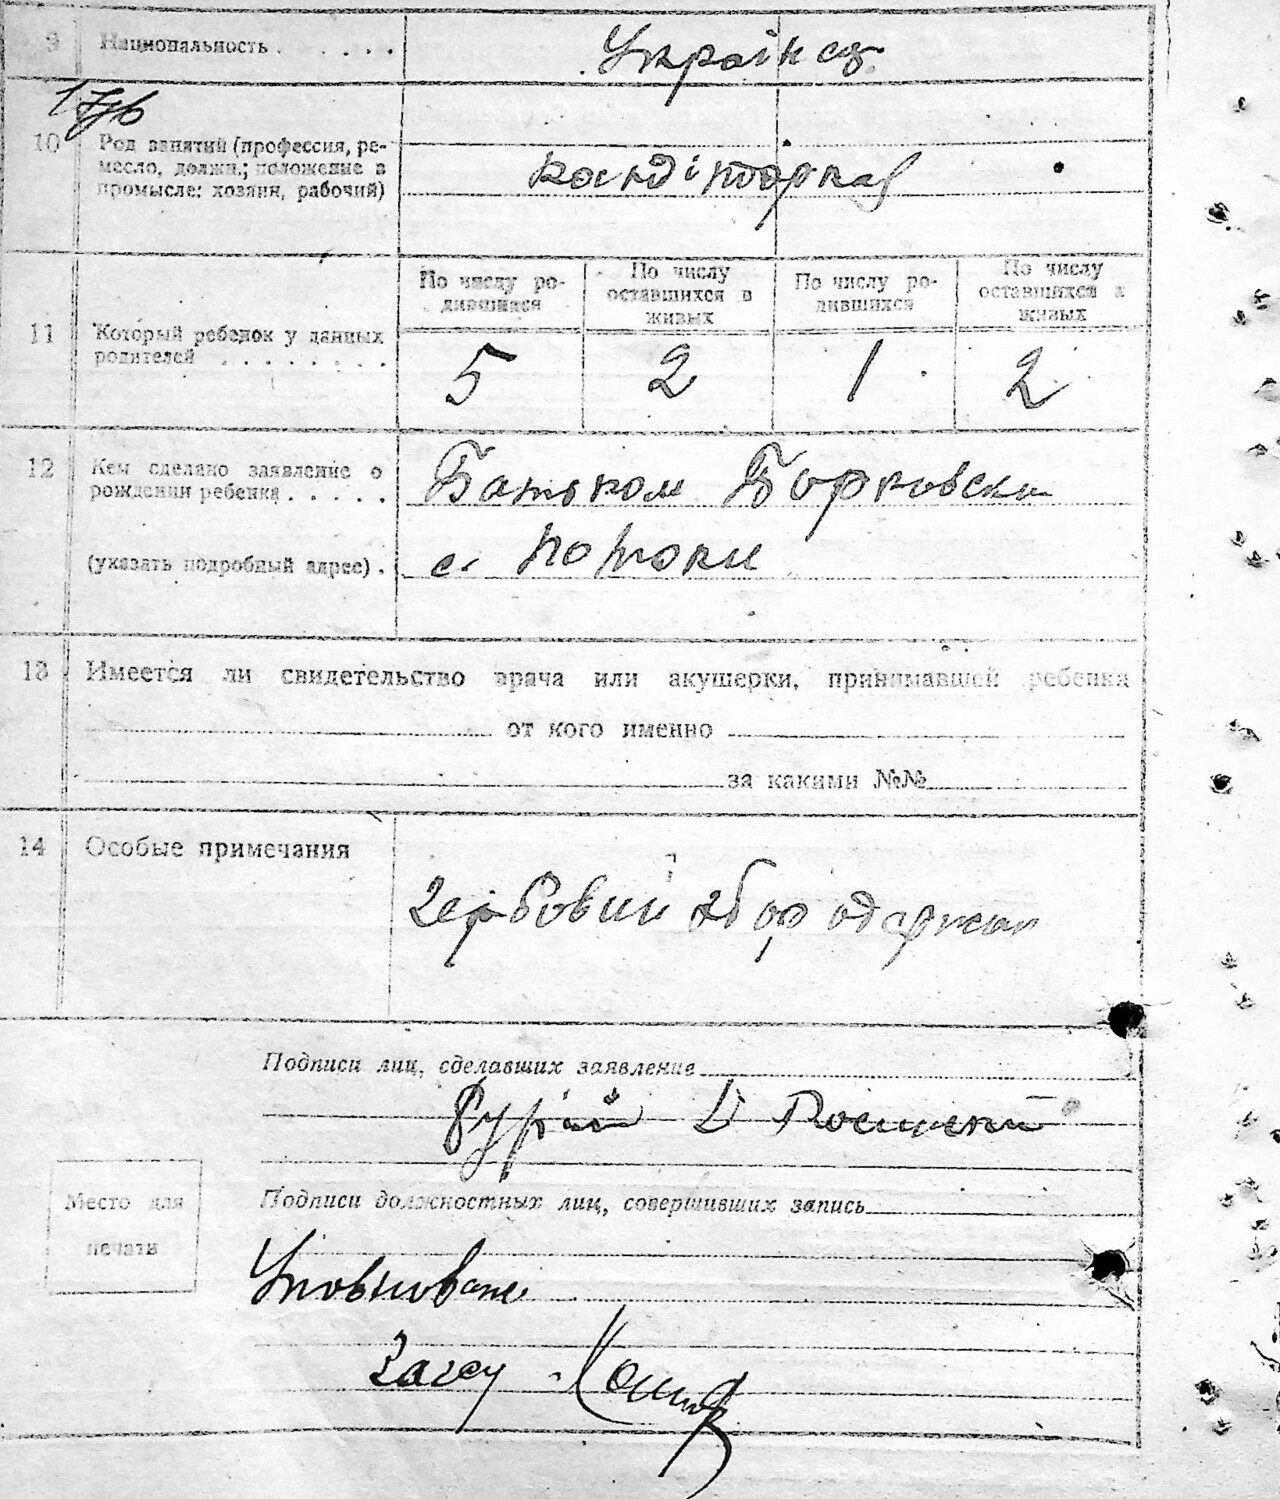 9 Национальность . . . . . . Українец
10 Род занятий (профессия, ре-
месло, должн.; положение в
промысле: хозяин, рабочий)
11 Который ребенок у данных
родителей . . . . . . . .
По числу ро-
дившихся
По числу
оставшихся в
живых
По числу ро-
дившихся
По числу
оставшихся в
живых
5 2 1 2
12 Кем сделано заявление о
рождении ребенка . . . . .
Батьком Борковски
(указать подробный адрес) . с. Потоки
13 Имеется ли свидетельство врача или акушерки, принимавшей ребенка
от кого именно
за какими №№
14 Особые примечания
Гербовий збор одержан
Подписи лиц, сделавших заявление
Подписи должностных лиц, совершивших запись
Место для
печати
Уповноваже
Загсу